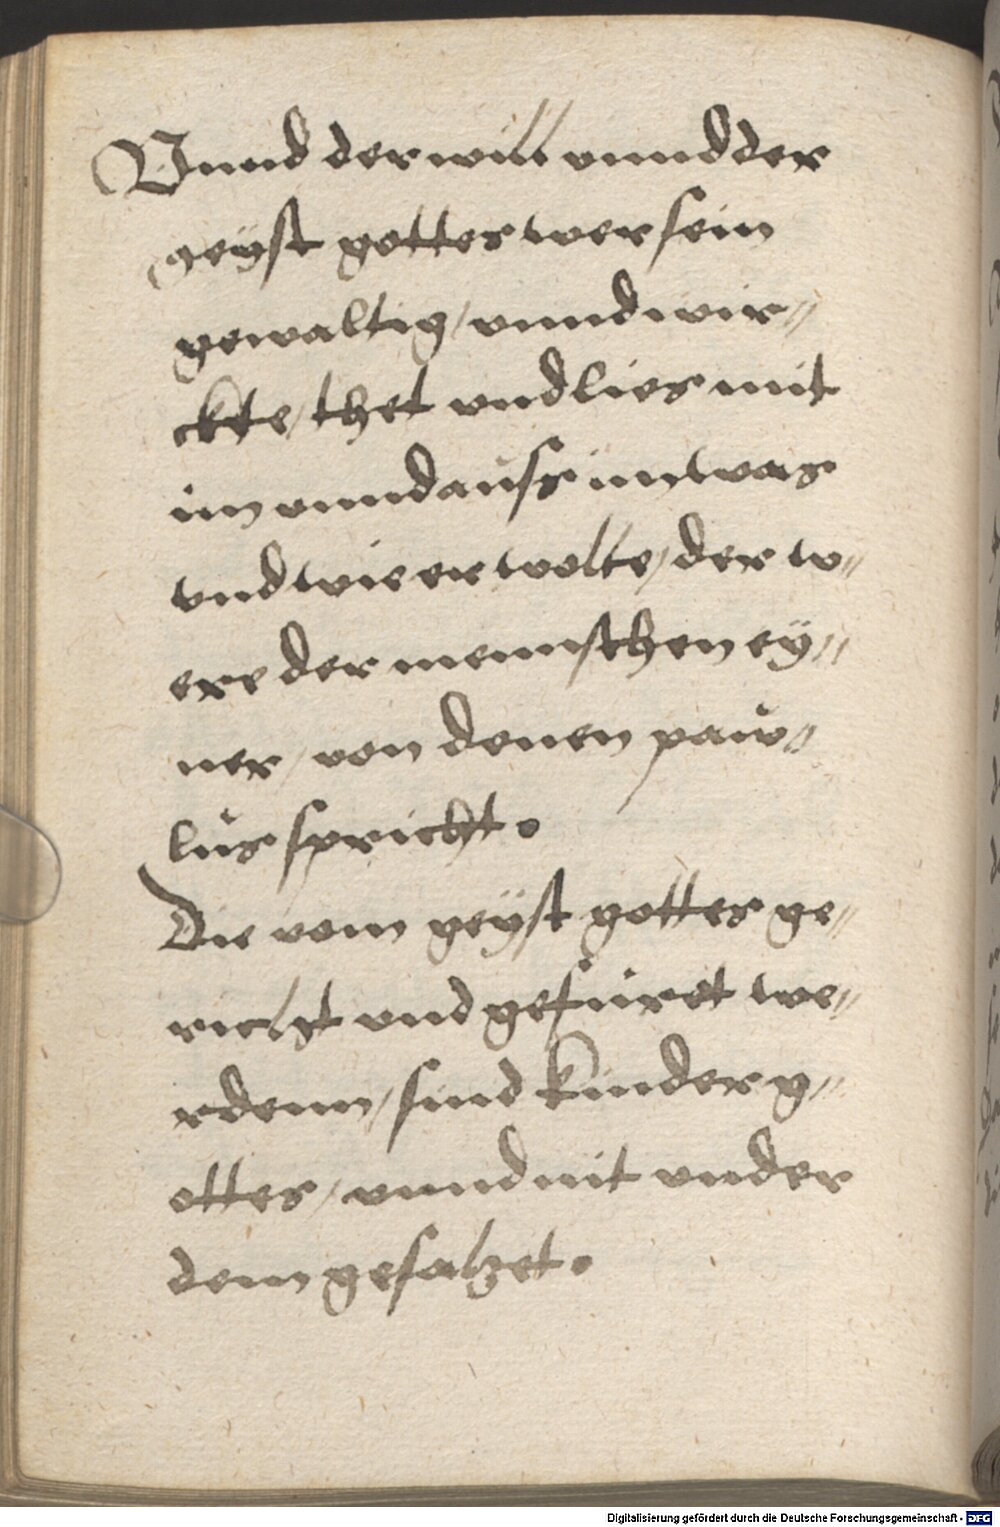 Vnnd der will vnnd der
geyst gottes wer sein
gewaltig / vnnd wir=
ckte / thet vnd lies mit
im vnnd auss im was
vnd wie er wolte / der w=
ere der mennschen ey=
ner / von denen paw=
lus spricht.
Die vom geyst gottes ge=
richt vnd gefuret we=
rdenn / sind kinder g=
ottes / vnnd nit vnder
dem gesatzet.
Digitalisierung gefördert durch die Deutsche Forschungsgemeinschaft - DFG